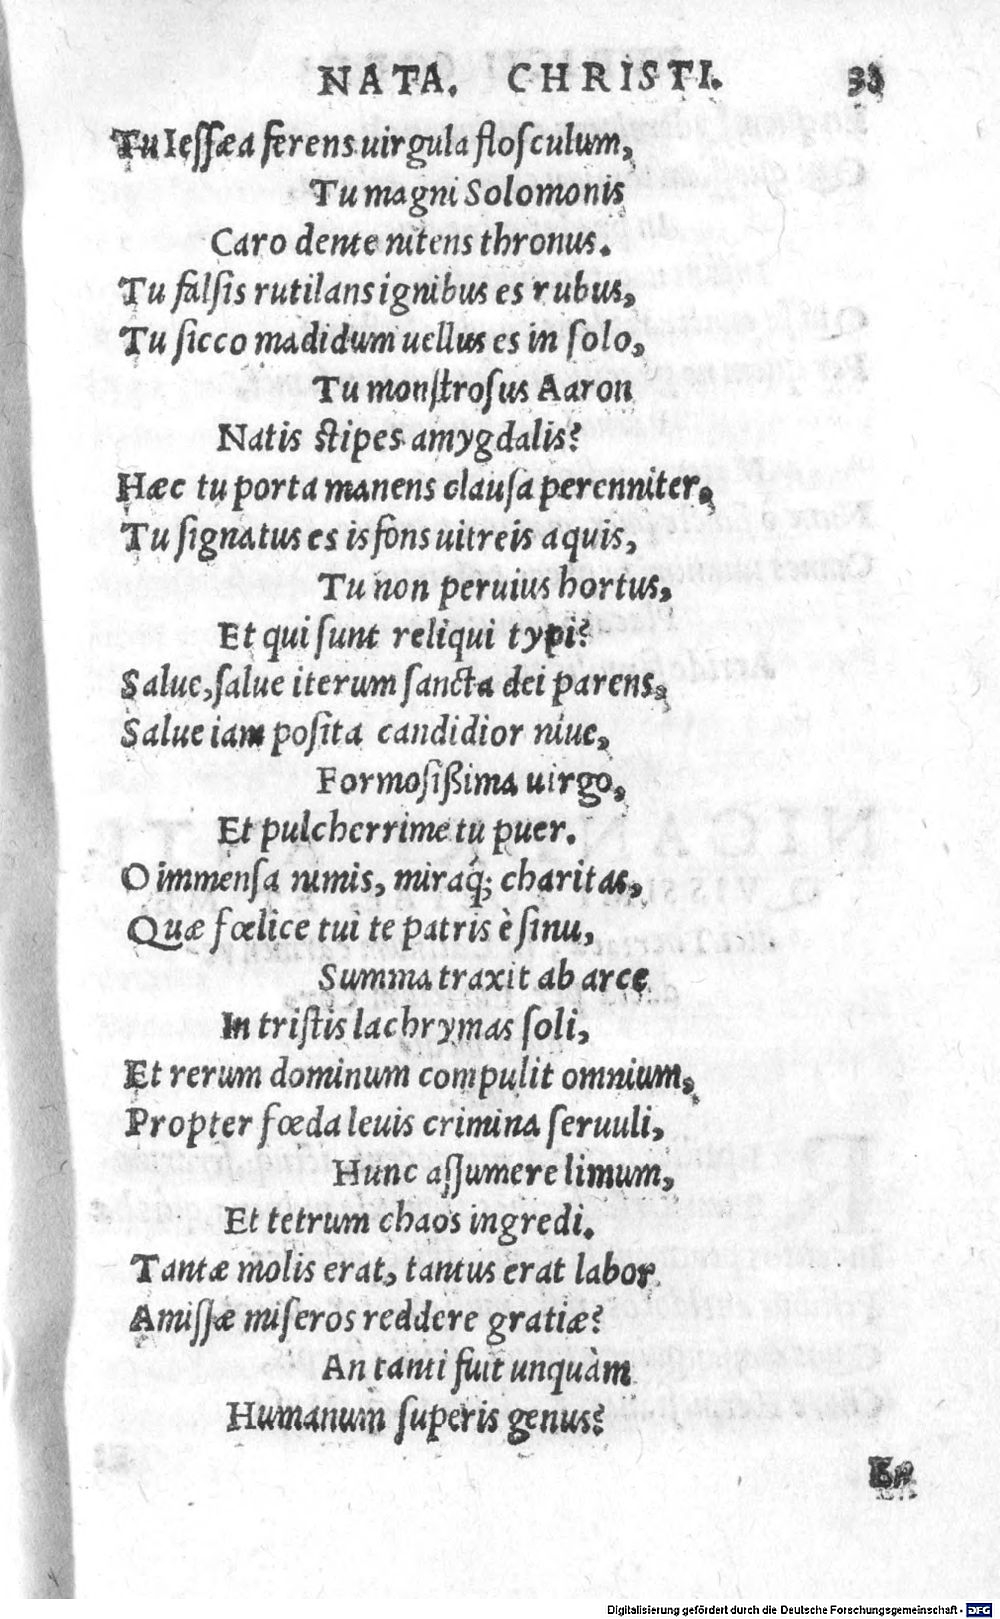 NATA. CHRISTI. 38
Tu Iessæa ferens uirgula flosculum,
Tu magni Solomonis
Caro dente nitens thronus.
Tu falsis rutilans ignibus es rubus,
Tu sicco madidum uellus es in solo,
Tu monstrosus Aaron
Natis stipes amygdalis?
Hæc tu porta manens clausa perenniter,
Tu signatus es is fons uitreis aquis,
Tu non peruius hortus,
Et qui sunt reliqui typi?
Salue, salue iterum sancta dei parens,
Salue iam posita candidior niue,
Formosißima uirgo,
Et pulcherrime tu puer.
O immensa nimis, miraq́; charitas,
Quæ fœlice tui te patris è sinu,
Summa traxit ab arce
In tristis lachrymas soli,
Et rerum dominum compulit omnium,
Propter fœda leuis crimina seruuli,
Hunc assumere limum,
Et tetrum chaos ingredi.
Tantæ molis erat, tantus erat labor
Amissæ miseros reddere gratiæ?
An tanti fuit unquàm
Humanum superis genus?
En
Digitalisierung gefördert durch die Deutsche Forschungsgemeinschaft - DFG